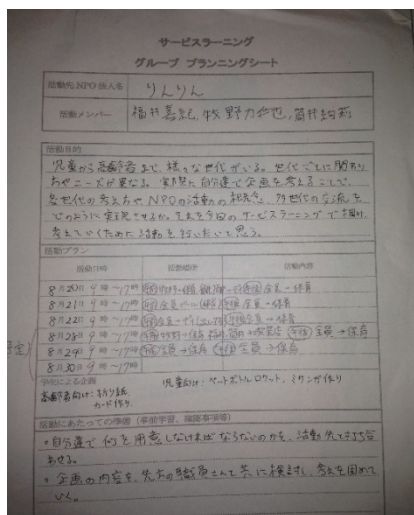 サービスラーニング
グループ プランニングシート
活動先 NPO 法人名 りんりん
活動メンバー 福井 牧野 筒井
活動目的
児童から高齢者まで、様々な世代がいる。世代ごとに関わり
方やニーズが異なる。実際に自分達で企画を考えることで、
各世代の考え方やNPOの活動の 多世代の交流を
どのように実現させるか。それを今回のサービスラーニングで
考えていくために活動を行いたいと思う。
活動プラン
活動日時 活動場所 活動内容
8月20日 9時〜17時 全員→保育
8月21日 9時〜17時 全員→保育
8月22日 9時〜17時 全員→保育
8月28日 9時〜17時 全員→保育
8月29日 9時〜17時 全員→保育 全員→保育
8月30日 9時〜17時
学生による企画 児童向け:ペットボトルロケット、ミサンガ作り
高齢者向け:折り紙
カード作り
活動にあたっての準備(事前学習、確認事項等)
・自分達で何を用意しなければならないのかを、活動先で打ち合
わせる。
・企画の内容を、先方の職員さんと共に検討し、考えを固めて
いく。